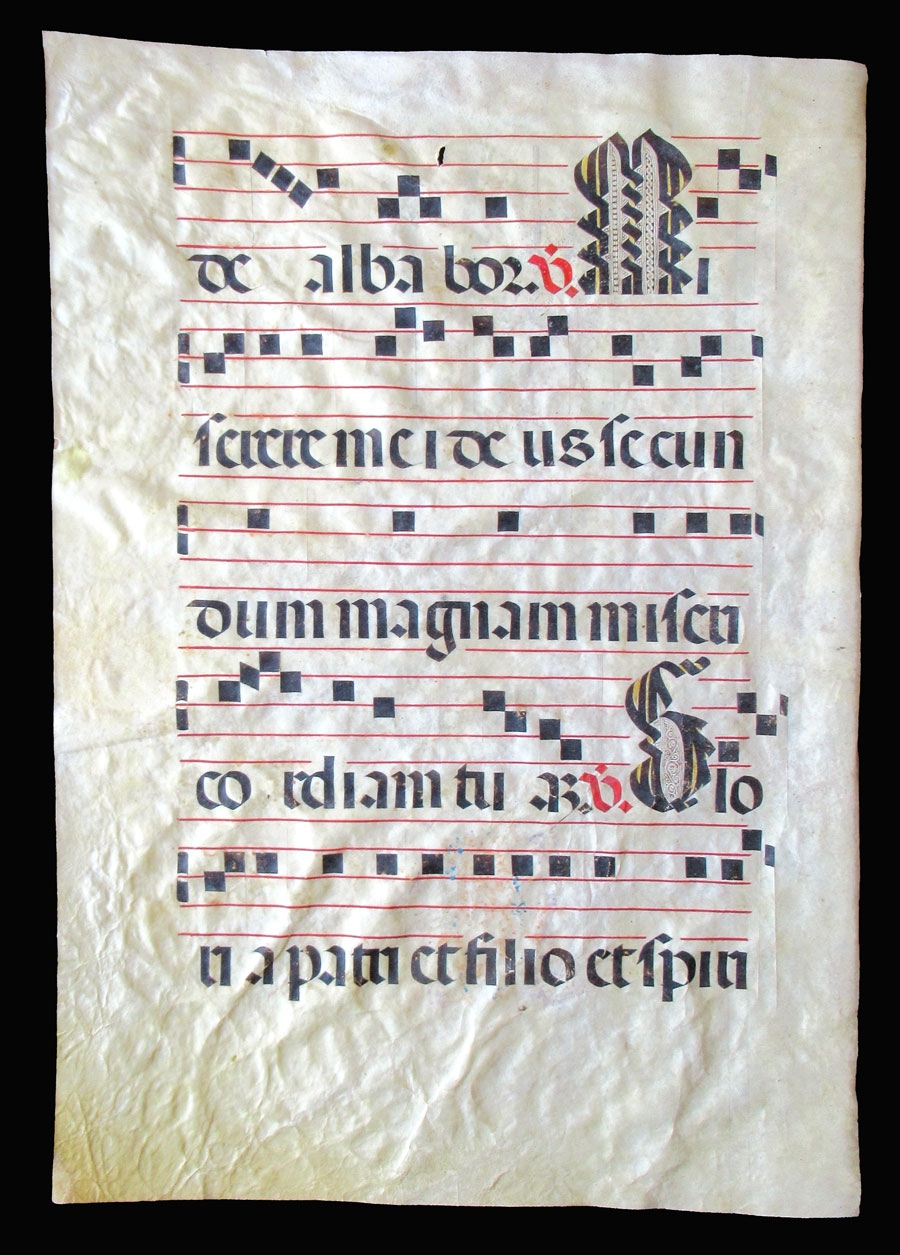 de alba bor. V. Mi
serere mei deus secun
dum magnam miseri
cordiam tuam. V. Glo
ria patri et filio et spiri